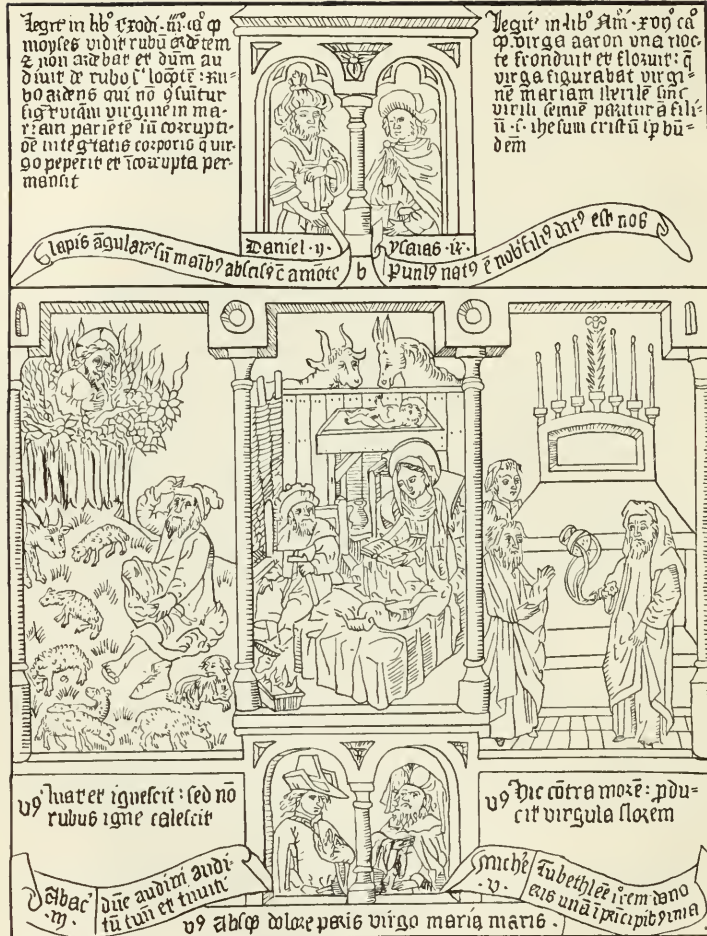 Legit' in lib° Exodi · iii° · ca° ꝙ
moyses vidit rubū ardētem
⁊ non ardebat et dūm au
divit de rubo s' loq̄ntē : Ru=
bo ardens qui nō ꝯsuitur
figrat virginē in ma=
riam parietē sn̄ corrupti=
oē integ'tatis corporis q̄ vir=
go peperit et īcorrupta per=
mansit
Legit' in lib° Nm̄i · xvij° ca°
ꝙ virga aaron una noc=
te fronduit et floruit : q̄
virga figurabat virgi=
nē mariam sterilē sine
virili semine paritura fili=
ū · s · ihesum cristū
dem
lapis āgular' sn̄ maib⁹ abscis⁹ ē a mōte
Daniel · ij ·
b
ysaias · ix ·
puul⁹ nat⁹ ē nob' fili⁹ dat⁹ est nob
v⁹ lucet et ignescit : sed nō
rubus igne calescit
v⁹ hic cōtra morē : ꝓdu=
cit virgula florem
abac'
· iij ·
dn̄e audivi audi·
tū tuū et timui
Miche'
· v ·
Tu bethleē
eris
v⁹ absq̢ dolore paris virgo maria maris ·